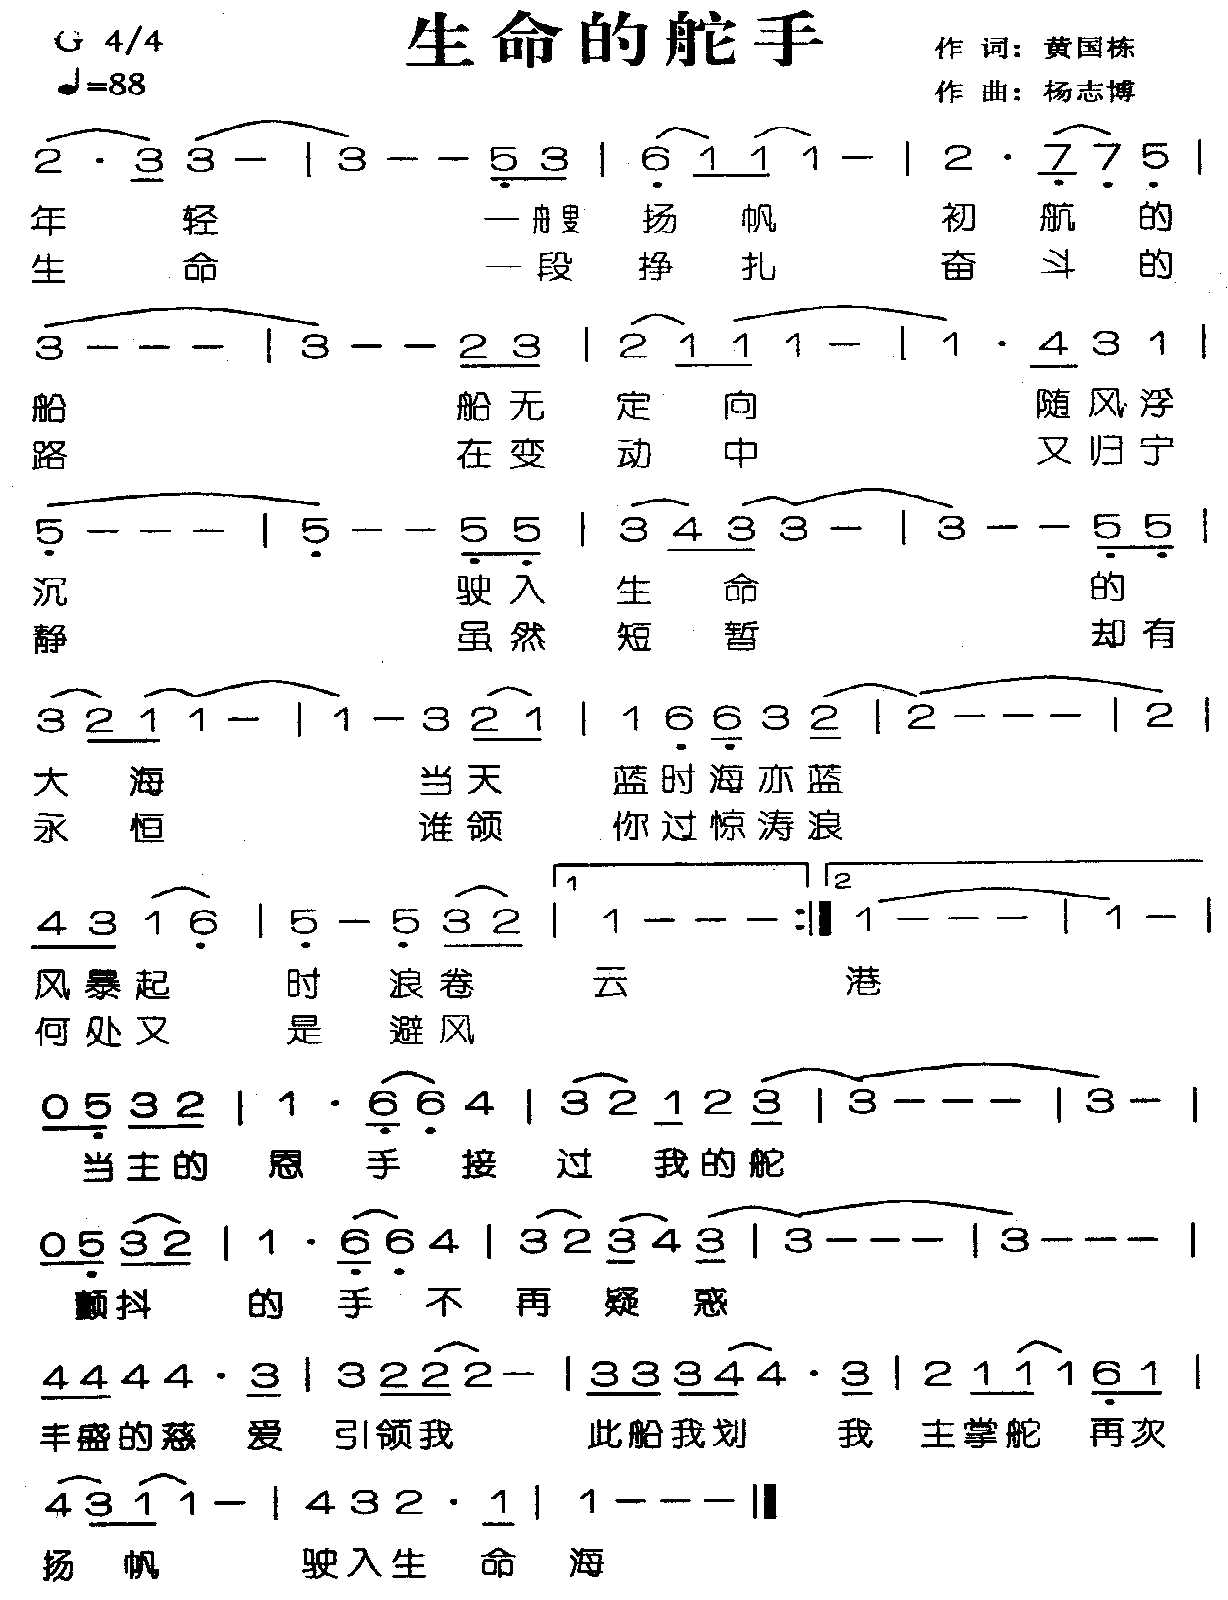 G 4/4
生命的舵手
作 词：黄国栋
♩=88
作 曲：杨志博
2 · 3 3 — | 3 — — 5 3 | 6 1 1 1 — | 2 · 7 7 5 |
年 轻 一艘 扬 帆 初 航 的
生 命 一段 挣 扎 奋 斗 的
3 — — — | 3 — — 2 3 | 2 1 1 1 — | 1 · 4 3 1 |
船 船无 定 向 随风浮
路 在变 动 中 又归宁
5 — — — | 5 — — 5 5 | 3 4 3 3 — | 3 — — 5 5 |
沉 驶入 生 命 的
静 虽然 短 暂 却有
3 2 1 1 — | 1 — 3 2 1 | 1 6 6 3 2 | 2 — — — | 2 |
大 海 当天 蓝时海亦蓝
永 恒 谁领 你过惊涛浪
4 3 1 6 | 5 — 5 3 2 | 1 1 — — — :| 2 1 — — — | 1 — |
风暴起 时 浪卷 云 港
何处又 是 避风
0 5 3 2 | 1 · 6 6 4 | 3 2 1 2 3 | 3 — — — | 3 — |
当主的 恩 手 接 过 我的舵
0 5 3 2 | 1 · 6 6 4 | 3 2 3 4 3 | 3 — — — | 3 — — — |
颤抖 的 手 不 再 疑 惑
4 4 4 4 · 3 | 3 2 2 2 — | 3 3 3 4 4 · 3 | 2 1 1 1 6 1 |
丰盛的慈 爱 引领我 此船我划 我 主掌舵 再次
4 3 1 1 — | 4 3 2 · 1 | 1 — — — |
扬 帆 驶入生 命 海